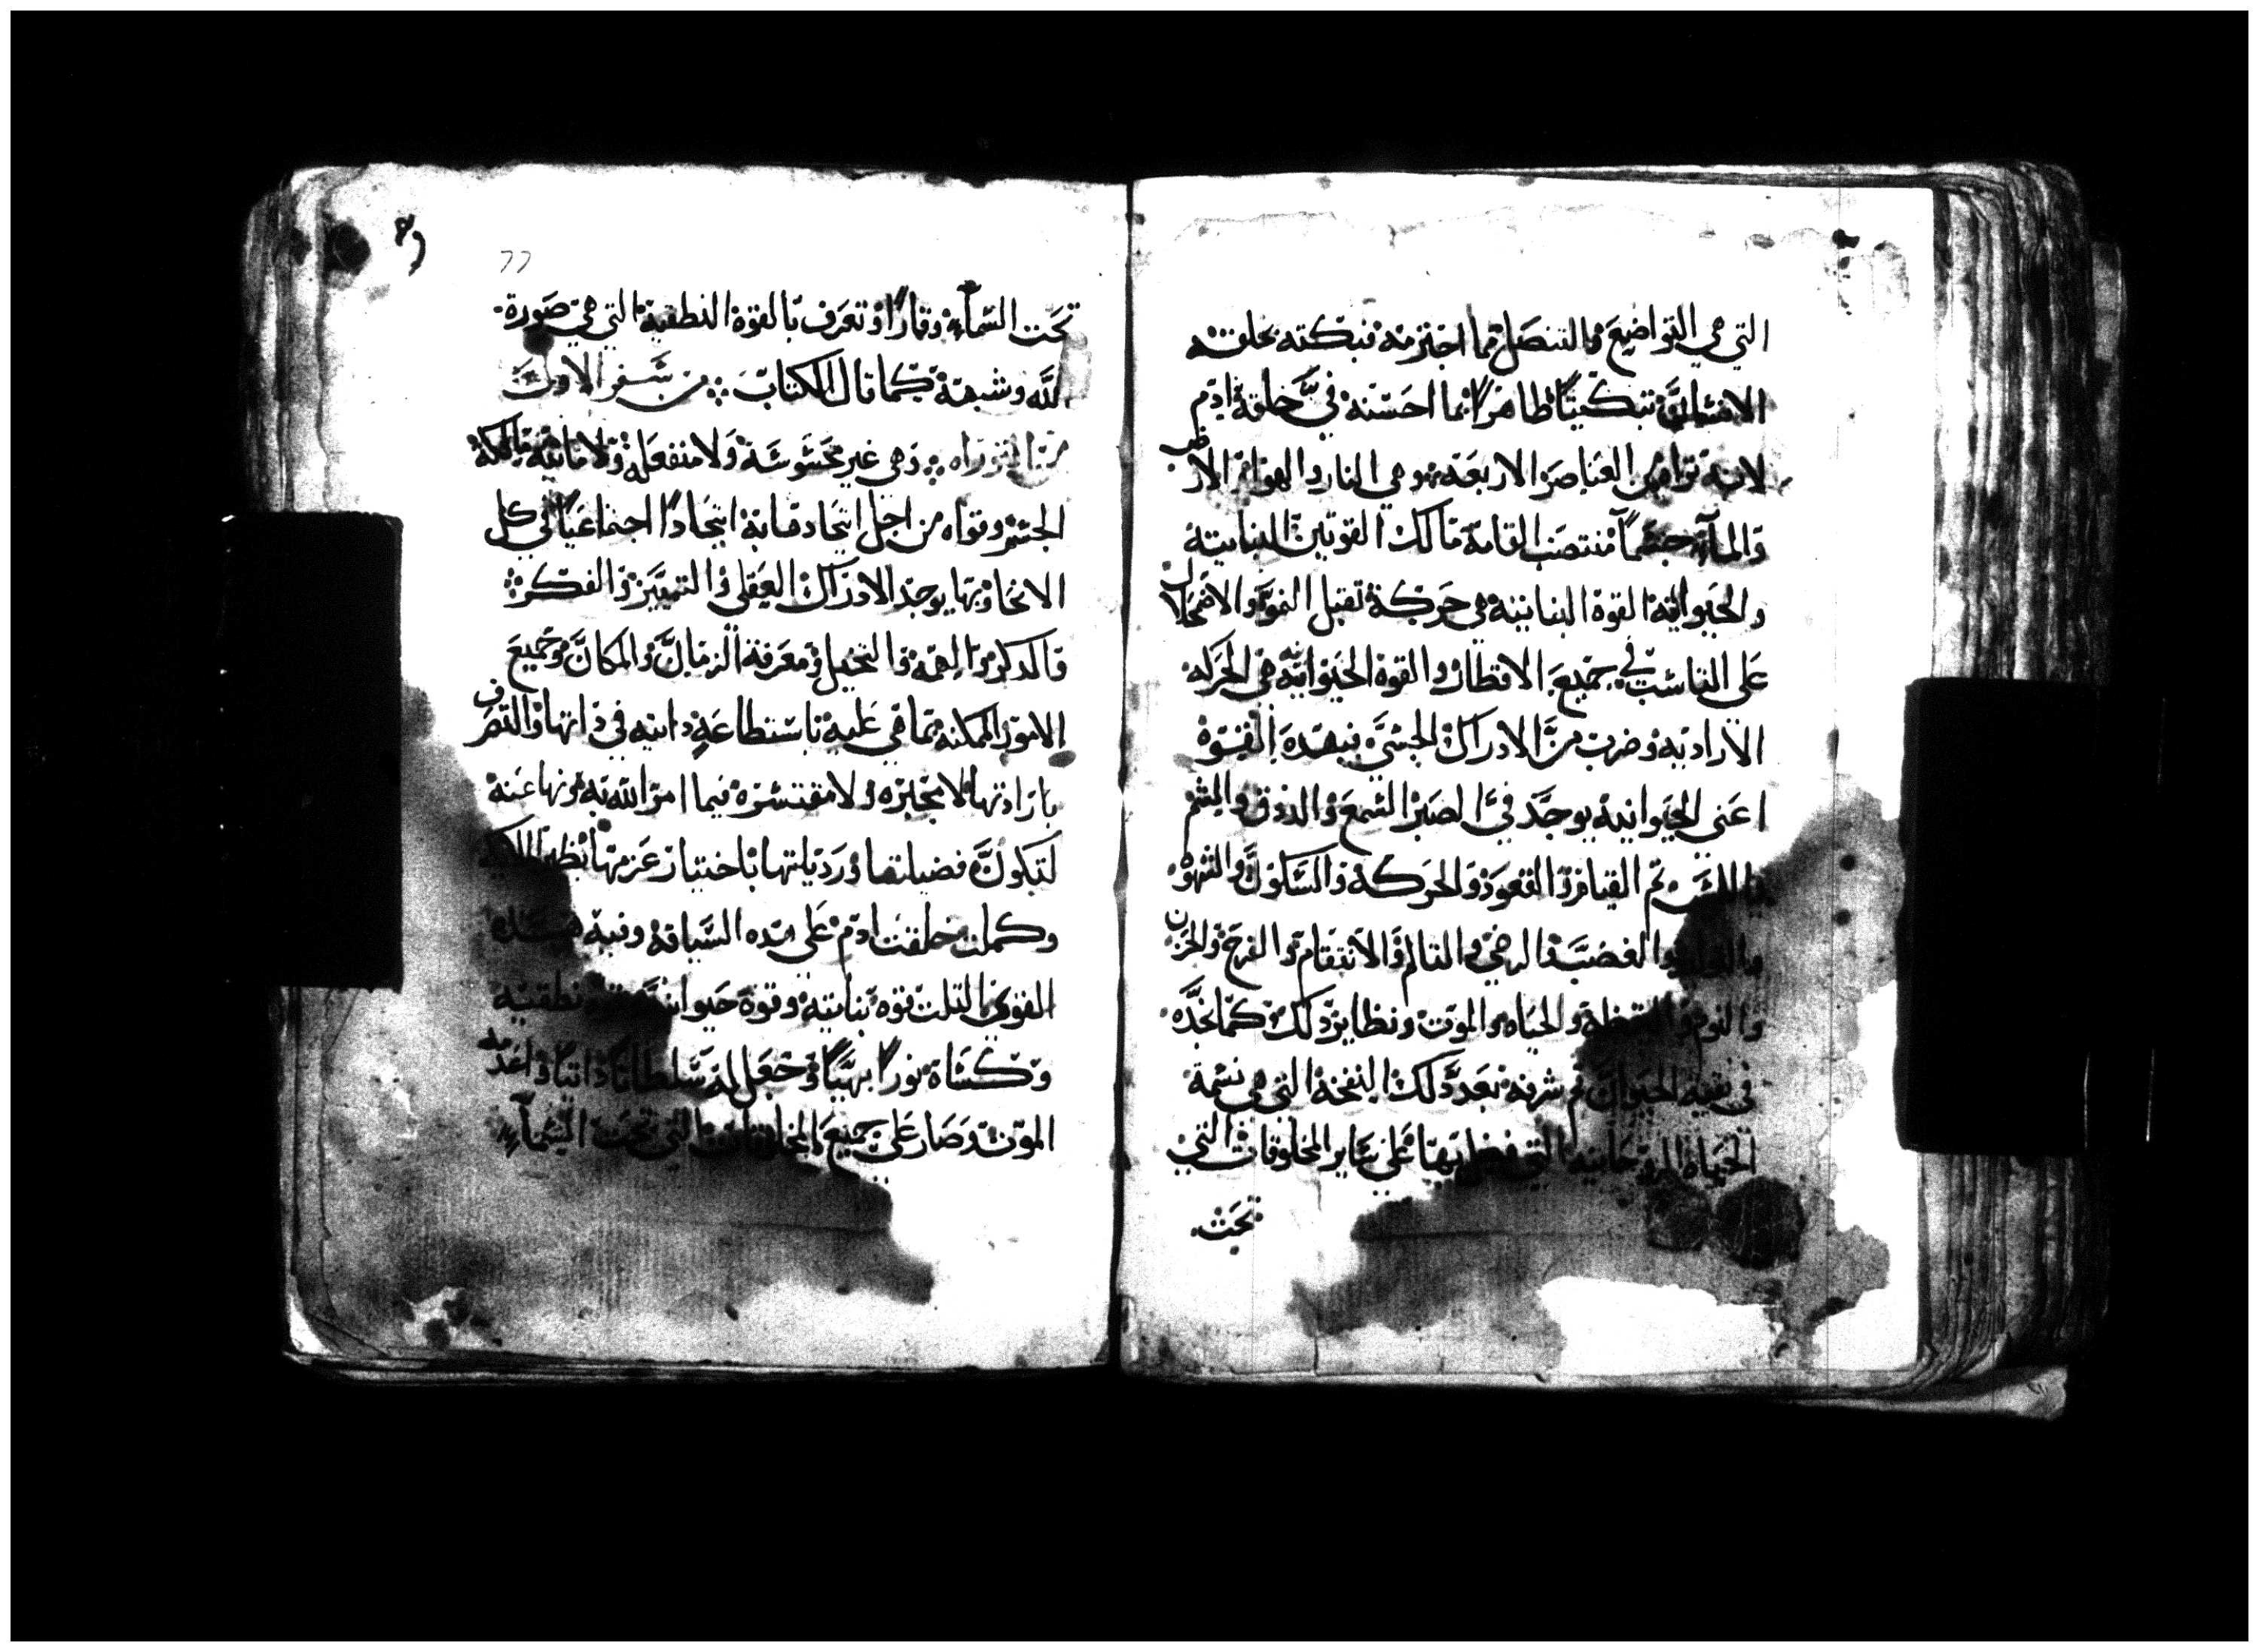 التي هي التواضع والتنصل مما اجترمه فبكته بخلقته
الانسان تبكيتًا ظاهرًا بما احسنه في خلقة ادم
لانه من العناصر الاربعه وهي النار والهوا والارض
والمآء جسمًا منتصب القامة مالك القوتين النباتية
والحيوانية القوة النباتيه هي حركة تقبل النمو والاضمحلال
على التناسب في جميع الاقطار والقوة الحيوانية هي الحركه
الاراديه وضرب من الادراك الحسي فبهده القوة
اعني الحيوانية يوجد في البصر السمع والدوق والشم
واللمس ثم القيام والقعود والحركة والسكون والشهوة
والغضب والرضي والتالم والانتقام والفرح والحزن
والنوم واليقظة والحياه والموت ونظاير دلك كما نجده
في بقية الحيوان ثم شرفه بعد دلك النفخة التي هي نسمة
الحياة الروحانيه التي فضل بها على ساير المخلوقات التي
تحت
77
تحت السمآء وقارًا وتعرف بالقوة النطقية التي هي صورة
الله وشبهة كما قال الكتاب من سفر الاول
من التوراه وهي غير محسوسة ولا منفعله ولا مايته
الجسم وقواه من اجل اتحادها به اتحادًا اجتماعيًا في كل
الانحا وبها يوجد الادراك العقلي والتمييز والفكر
والدكر والهمه والتخيل ومعرفة الزمان والمكان وجميع
الامور الممكنه مما هي عليه باستطاعةٍ داتيه في داتها والتصرف
بارادتها لا مجبره ولا مقتسره فيما امر الله به ونها عنه
لتكون فضيلتها وردیلتها باختیار عزمها
وكملت خلقت ادم على هده السياقة ونبه هده
القوي التلت قوه نباتيه وقوة حيوانية وقوة نطقيه
وكساة نورًا بهيًا وجعل له سلطانًا داتيًا واعدمه
الموت وصار على جميع المخلوقات التي تحت السمآء